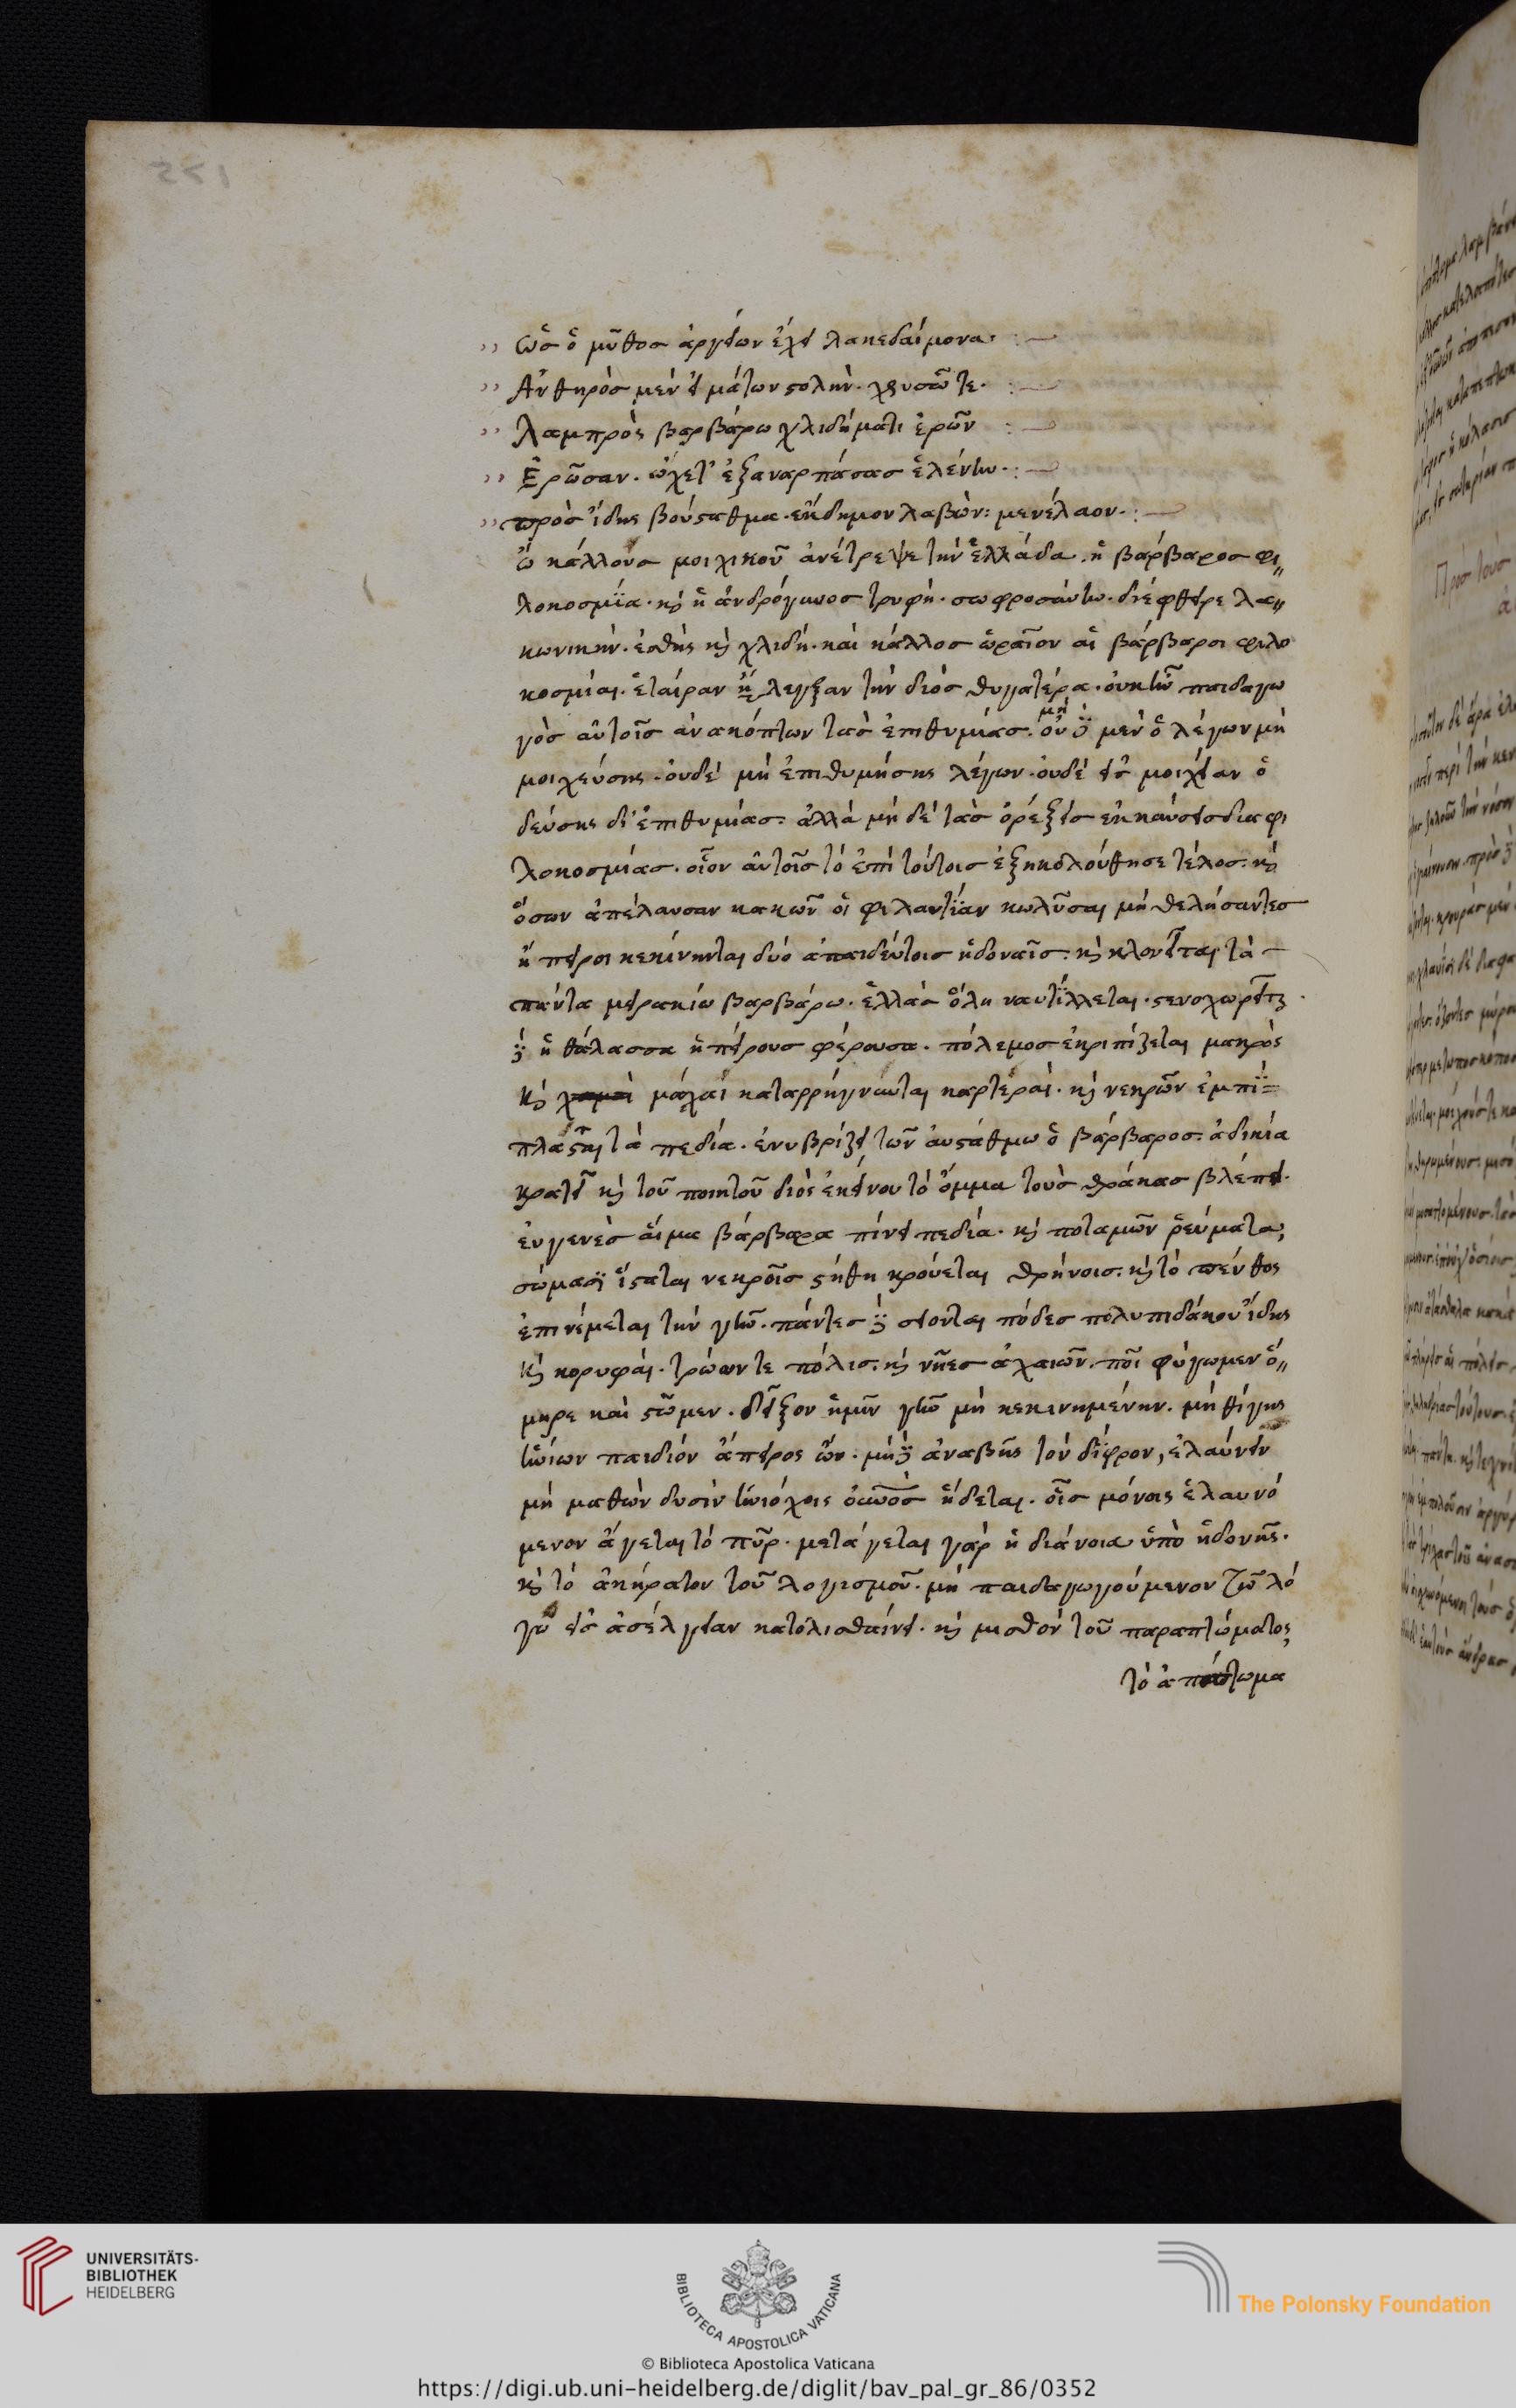 ὡς ὁ μῦθος ἀργείων ἔχει λακεδαίμονα.
Ἀνθηρὸς μὲν εἱμάτων στολὴν. χρυσῶ τε.
λαμπρὸς βαρβάρω χλιδήματι ἐρῶν
Ἐρῶσαν. ὤχετ' ἐξαναρπάσας ἑλένην.
πρὸς ἴδης βούσταθμα. ἔκδημον λαβὼν: μενέλαον.
ὦ κάλλους μοιχικοῦ ἀνέτρεψε τὴν ἑλλάδα. ἡ βάρβαρος φι
λοκοσμΐα. κὶ ἡ ἀνδρόγυνος τρυφή. σωφροσύνην. διέφθειρε λα
κωνικήν. ἐσθὴς κὶ χλιδή. καὶ κάλλος ὡραῖον αἱ βάρβαροι φιλο
κοσμίαι. ἑταίραν ἤλεγξαν τὴν διὸς θυγατέρα. οὐκ ἦν παιδαγω
γὸς αὐτοῖς ἀνακόπτων τὰς ἐπιθυμίας.
μὴ
οὐ γὰρ μὲν ὁ λέγων μὴ
μοιχεύσης. οὐδὲ μὴ ἐπιθυμήσης λέγων. οὐδὲ εἰς μοιχείαν ὁ
δεύσης δι' ἐπιθυμίας. ἀλλὰ μὴ δὲ τὰς ὀρέξεις ἐκκαύσεις διαφι
λοκοσμίας. οἷον αὐτοῖς τὸ ἐπὶ τούτοις ἐξηκολούθησε τέλος. κὶ
ὅσων ἀπέλαυσαν κακῶν οἱ φιλαυτΐαν κωλῦσαι μὴ θελήσαντες
ἤπειροι κεκίνηνται δύο ἀπαιδεύτοις ἡδοναῖς. κὶ κλονεῖται τὰ
πάντα μειρακίω βαρβάρω. ἑλλὰς ὅλη ναυτΐλλεται. στενοχωρεῖται
δὲ ἡ θάλασσα ἠπείρους φέρουσα. πόλεμος ἐκριπίζεται μακρὸς
κὶ μάχαι καταρρήγνυνται καρτεραί. κὶ νεκρῶν ἐμπί
πλασται τὰ πεδία. ἐνυβρίζει τῶν ναυστάθμω ὁ βάρβαρος. ἀδικία
κρατεῖ κὶ τοῦ ποιητοῦ διὸς ἐκείνου τὸ ὄμμα τοὺς θρᾶκας βλέπει.
εὐγενὲς αἷμα βάρβαρα πίνει πεδία. κὶ ποταμῶν ῥεύματα,
σώμασϊ ἵσταται νεκροῖς στήθη κρούεται θρήνοις. κὶ τὸ πένθος
ἐπινέμεται τὴν γῆν. πάντες δὲ σείονται πόδες πολυπιδάκου ἴδης
κὶ κορυφαί. τρώων τε πόλις. κὶ νῆες ἀχαιῶν. ποῖ φύγωμεν ὅ
μηρε καὶ στῶμεν. δεῖξον ἡμῖν γῆν μὴ κεκινημένην. μὴ θίγης
ἡνίων παιδιὸν ἄπειρος ὤν. μὴ δὲ ἀναβῆς τὸν δΐφρον, ἐλαύνειν
μὴ μαθὼν δυσὶν ἡνιόχοις ὁ οὐνὸς ἥδεται. οἷς μόνοις ἐλαυνό
μενον ἄγεται τὸ πῦρ. μετάγεται γὰρ ἡ διάνοια ὑπὸ ἡδονῆς.
κὶ τὸ ἀκήρατον τοῦ λογισμοῦ. μὴ παιδαγωγούμενον τῶ λό
γω εἰς ἀσέλγειαν κατολισθαίνει. κὶ μισθὸν τοῦ παραπτώματος
τὸ ἀπόπτωμα
UNIVERSITÄTS-
BIBLIOTHEK
HEIDELBERG
BIBLIOTECA APOSTOLICA VATICANA
The Polonsky Foundation
© Biblioteca Apostolica Vaticana
https://digi.ub.uni-heidelberg.de/diglit/bav_pal_gr_86/0352